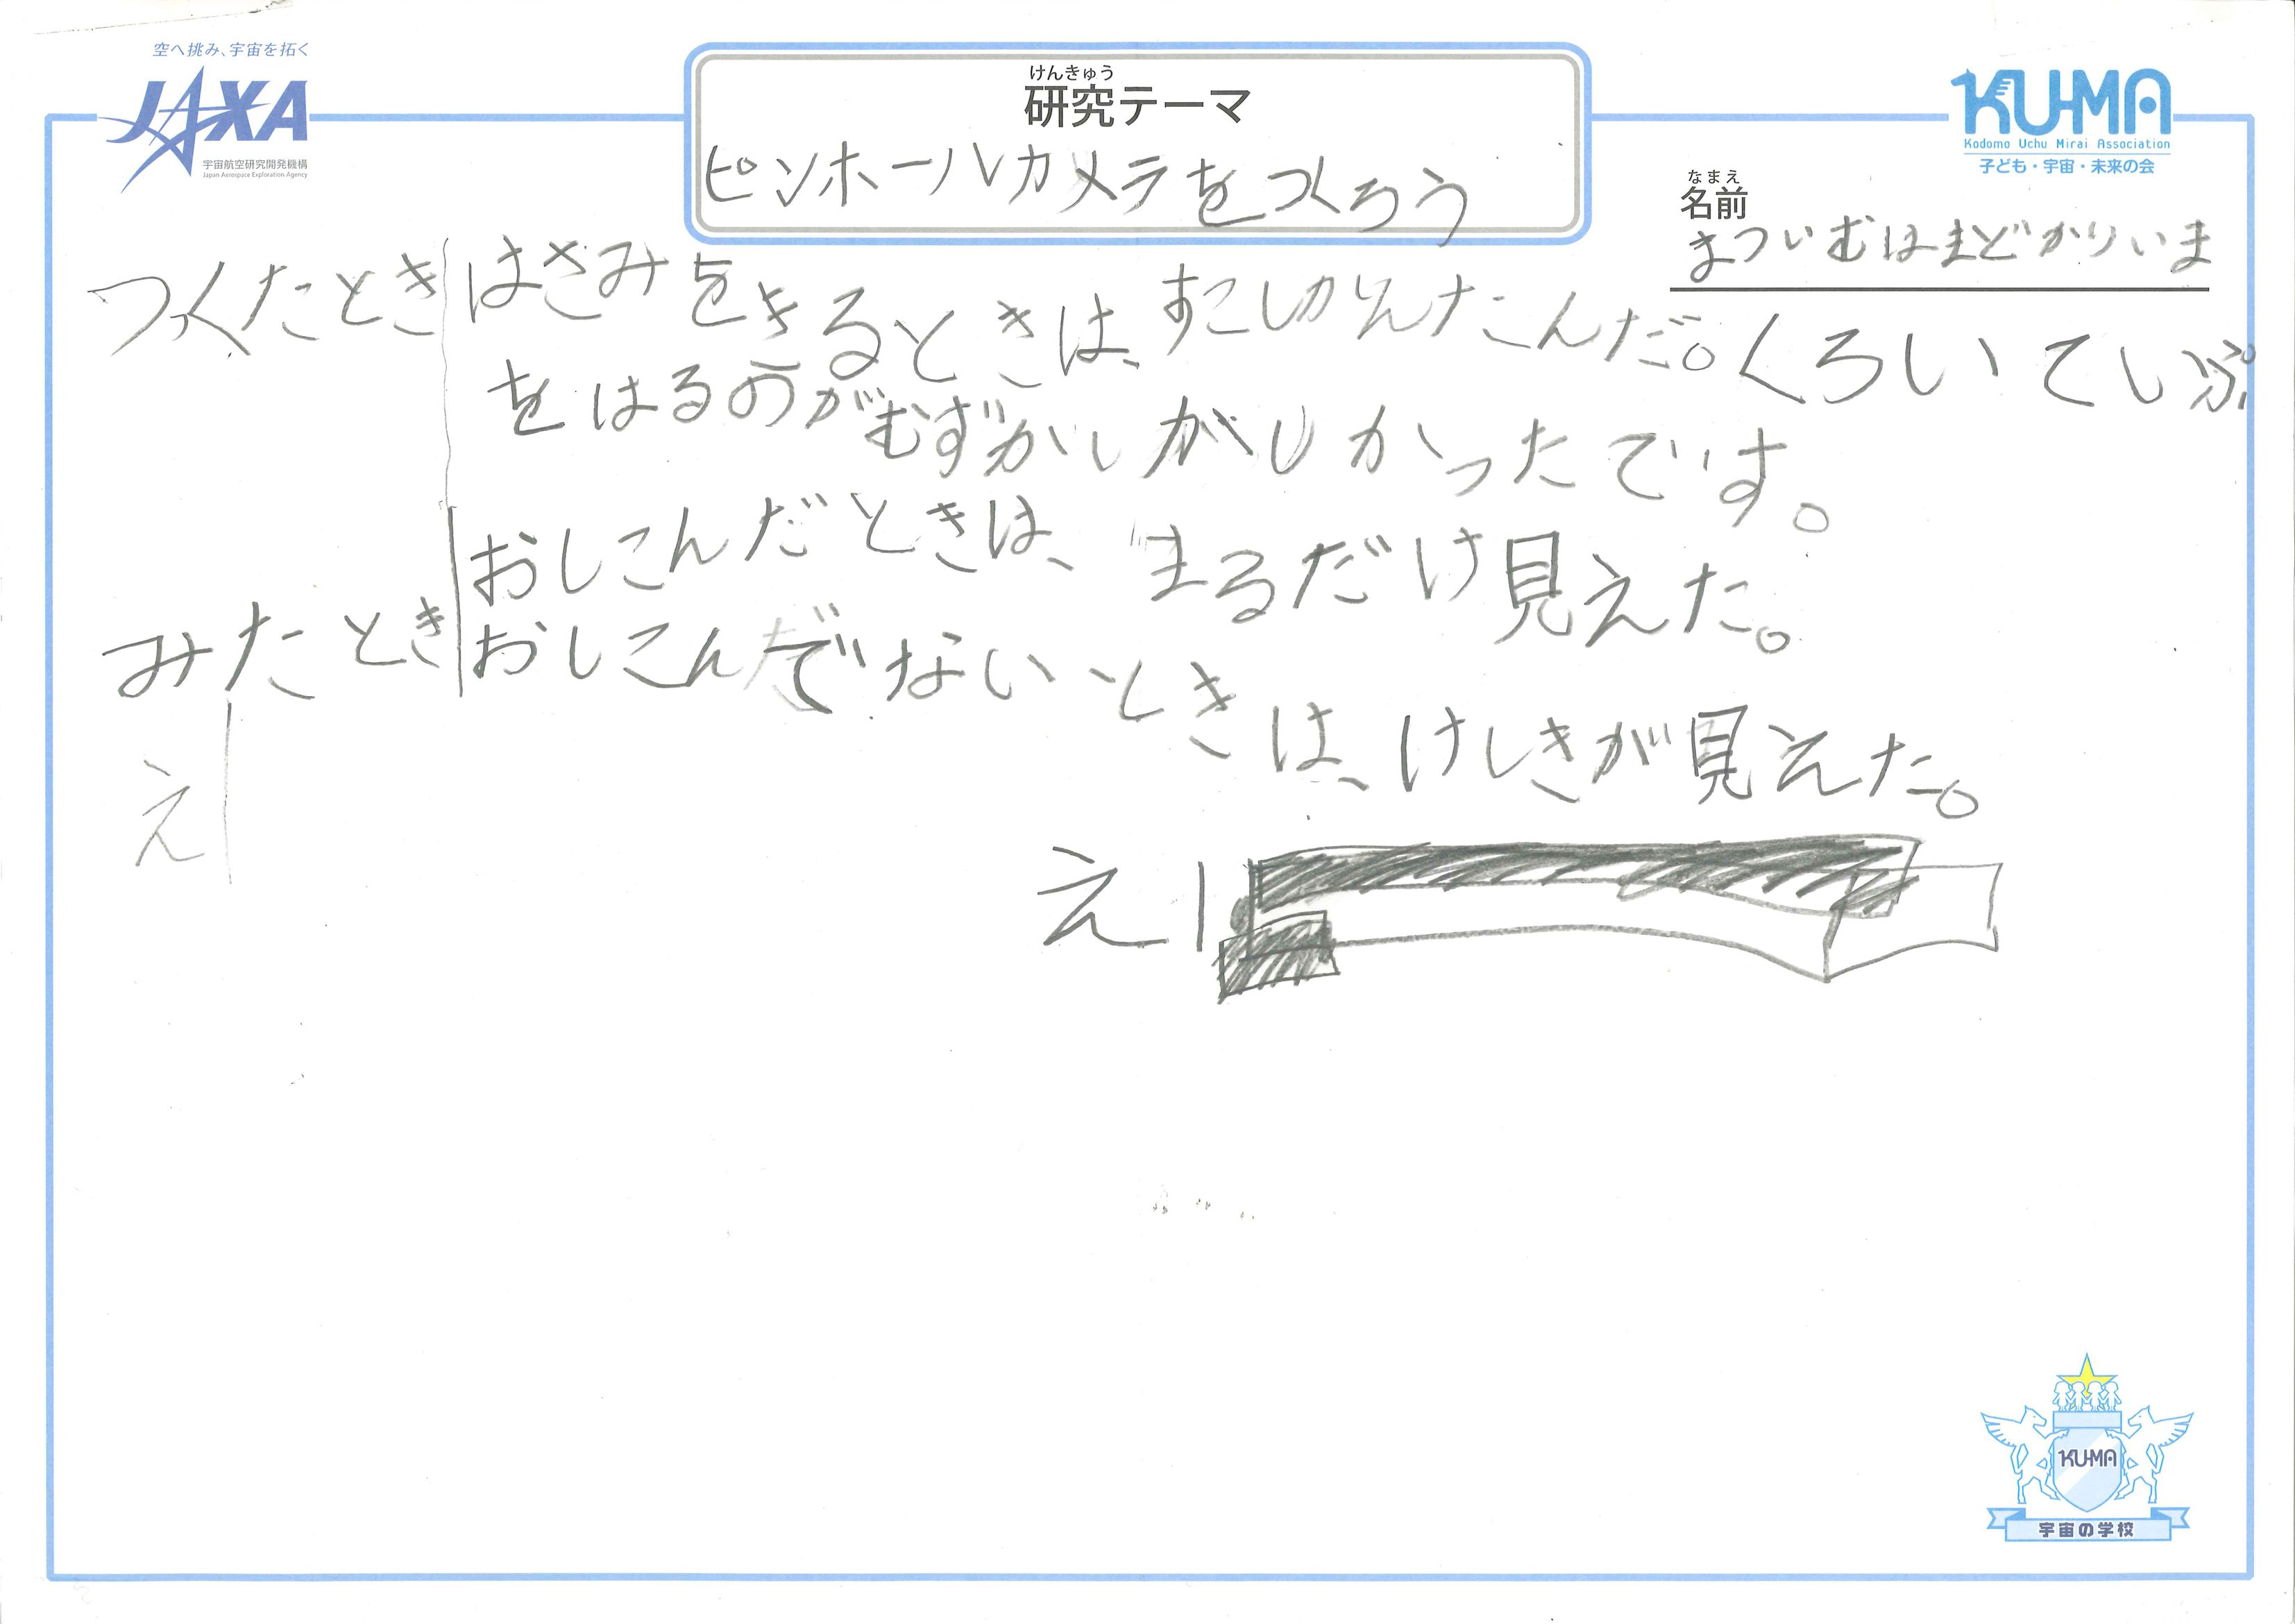 空へ挑み、宇宙を拓く
JAXA
宇宙航空研究開発機構
Japan Aerospace Exploration Agency
けんきゅう
研究テーマ
ピンホールカメラをつくろう
KU-MA
Kodomo Uchu Mirai Association
子ども・宇宙・未来の会
なまえ
名前
つくたとき
はさみをきるときは、すこしかんたんだ。くろいていぷ
をはるのがむずかしがしかったです。
おしこんだときは、まるだけ見えた。
みたとき
おしこんでないときは、けしきが見えた。
え
え
KU-MA
宇宙の学校